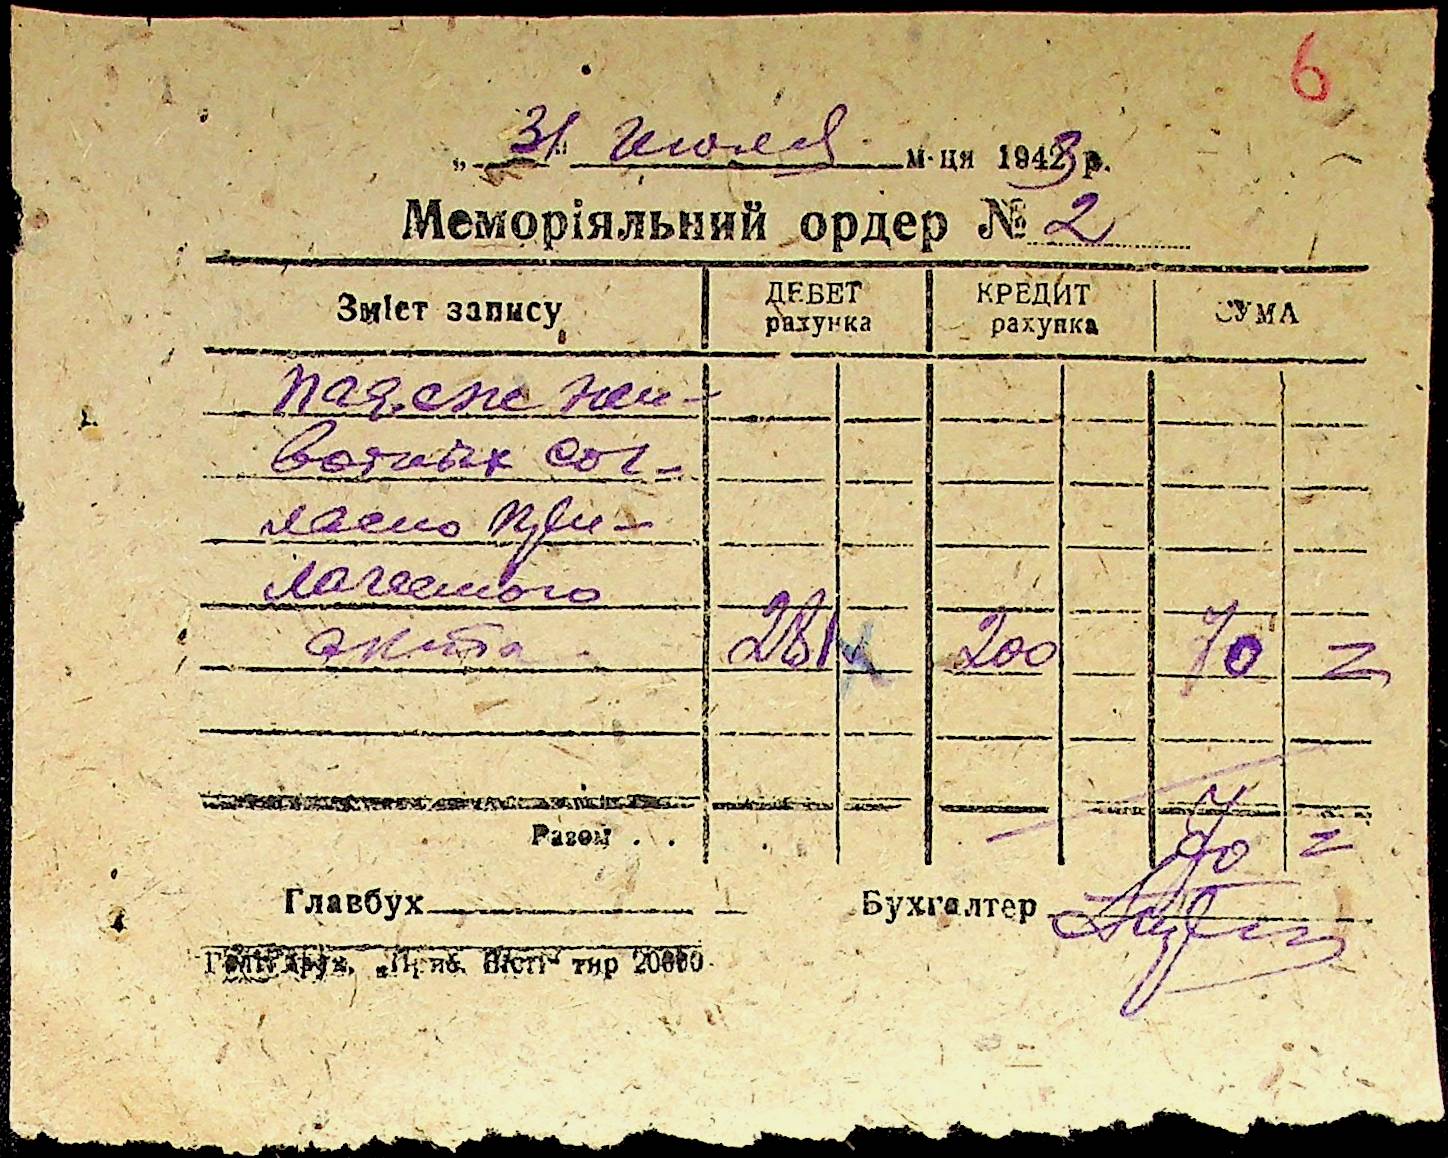 6
„31" Июля м-ця 1943 р.
Меморіяльний ордер № 2
Зміст запису ДЕБЕТ рахунка КРЕДИТ рахунка СУМА
падеже жи-
вотных сог-
ласно при-
лагаемого
акта 281 200 70 =
Разом . . 70 =
Главбух Бухгалтер
тир 20000